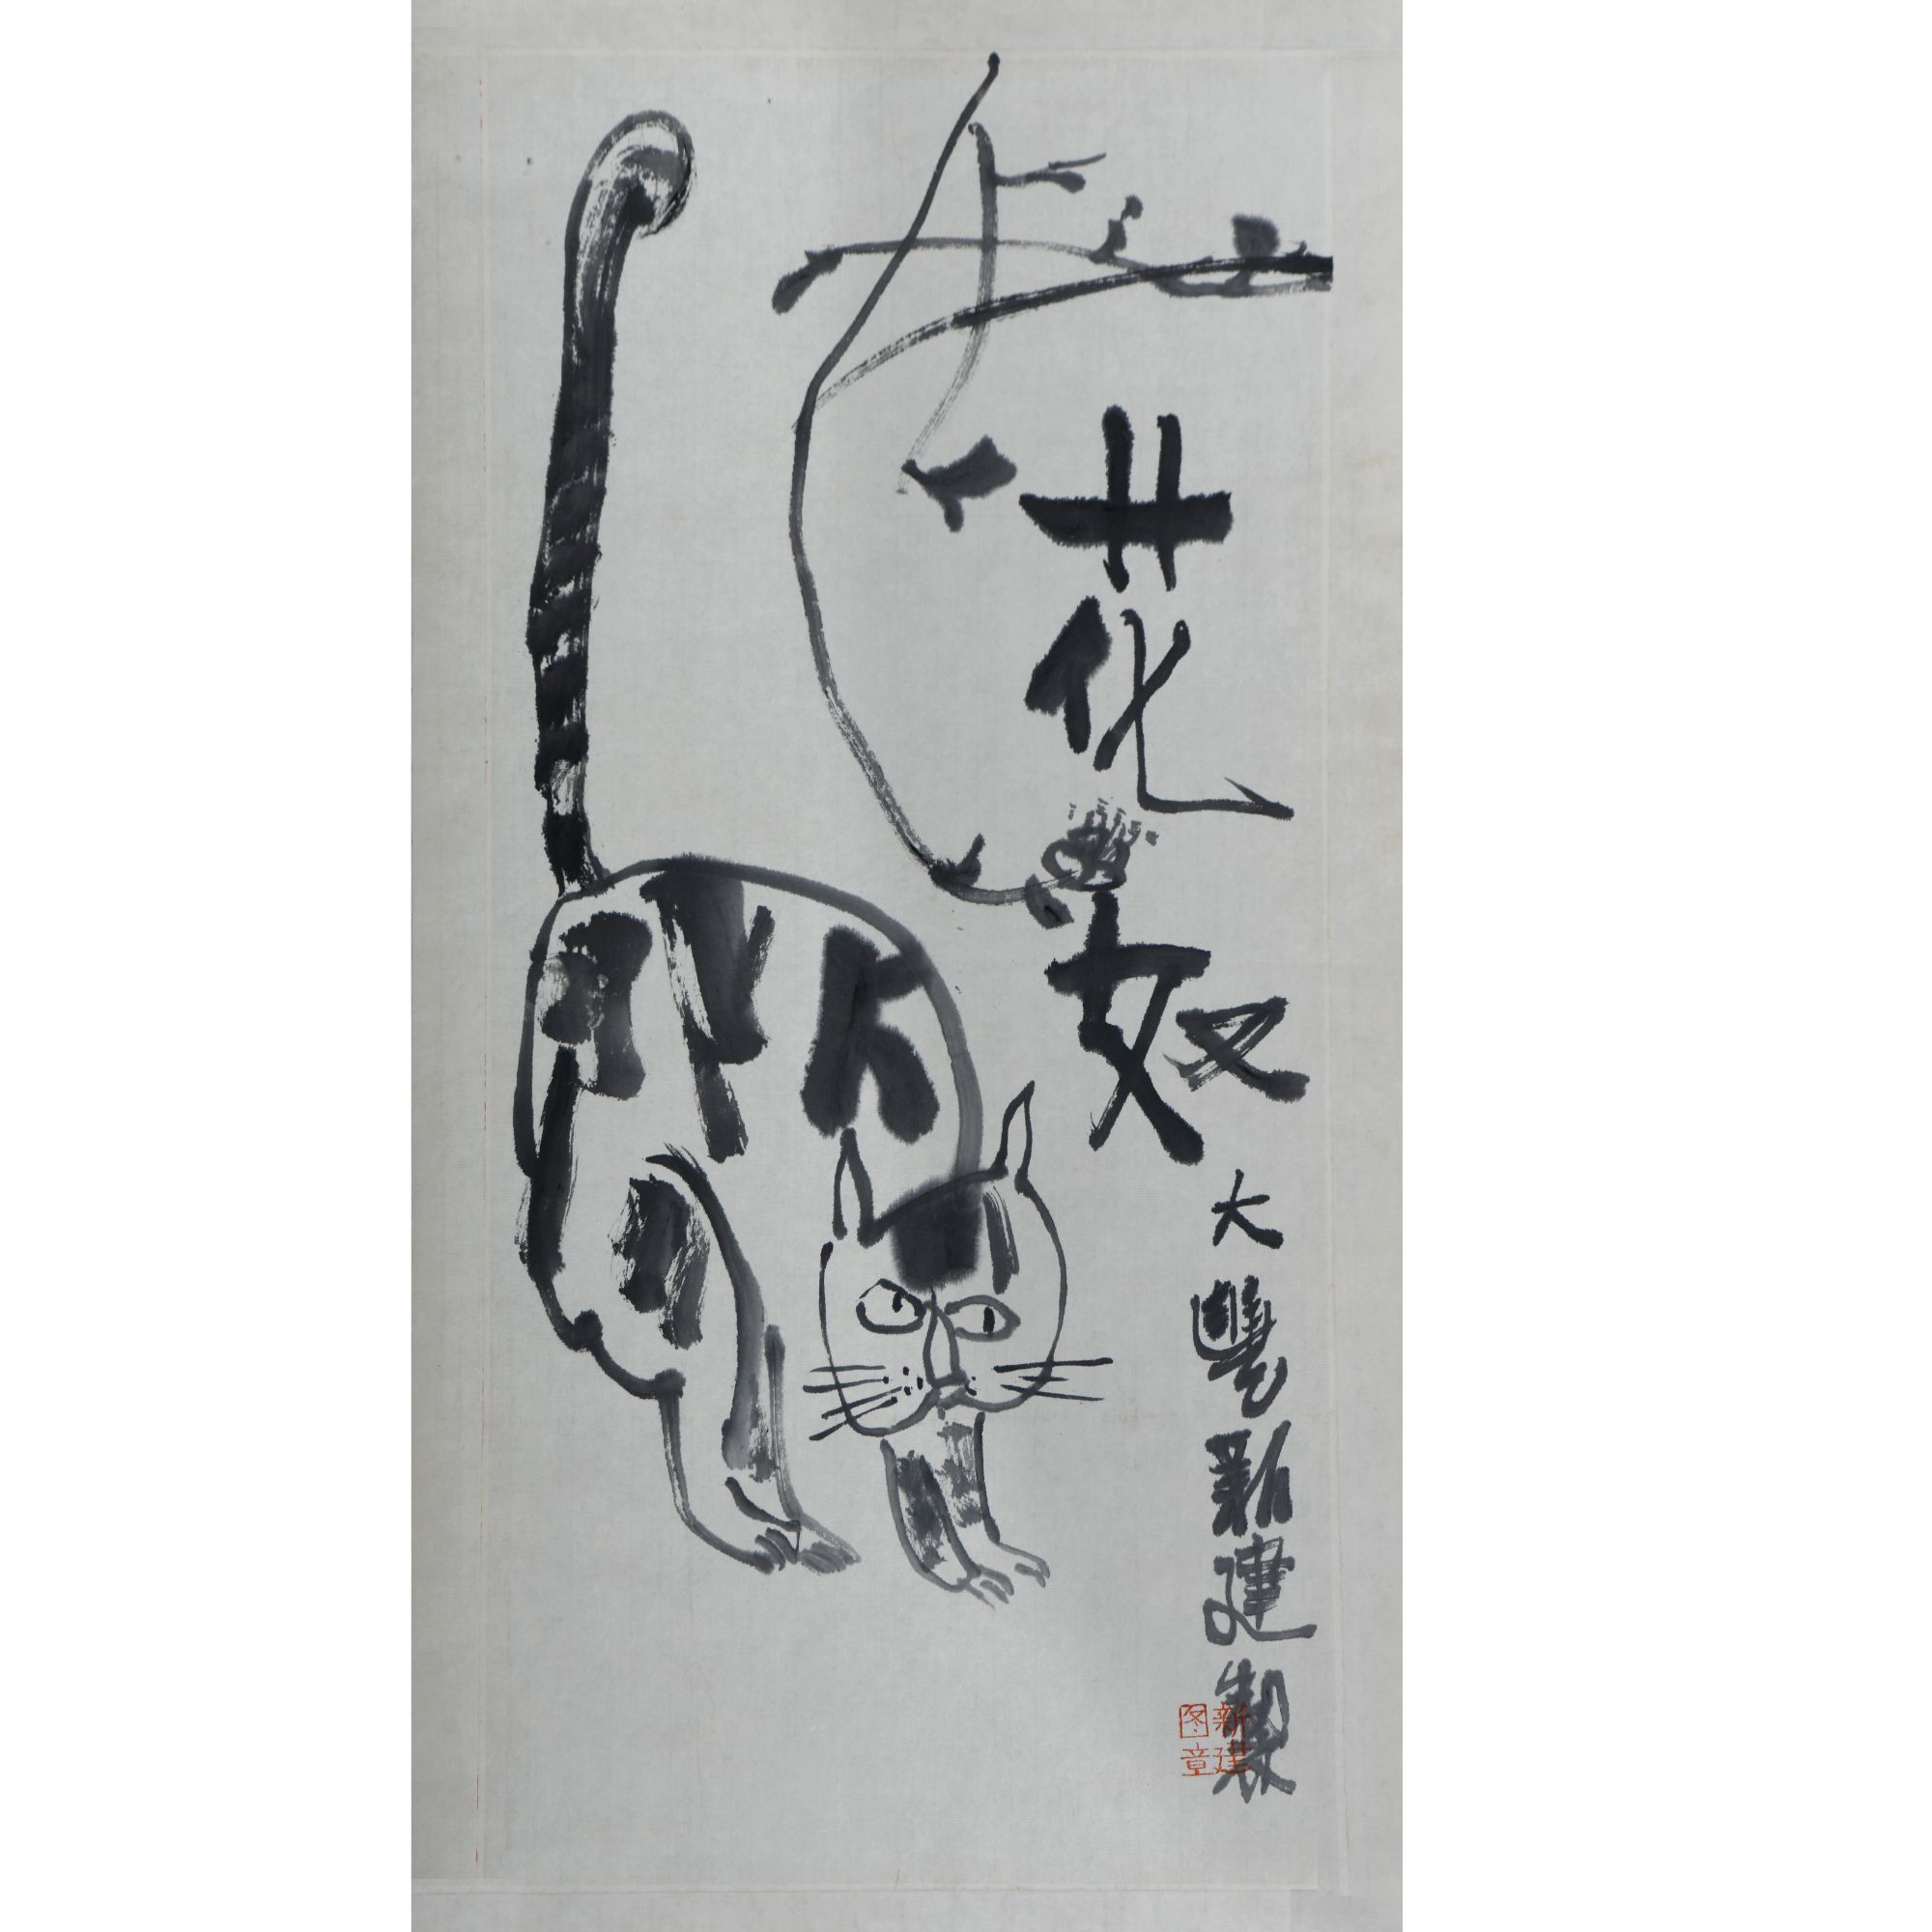 花奴
大豐新建製
新建
图章